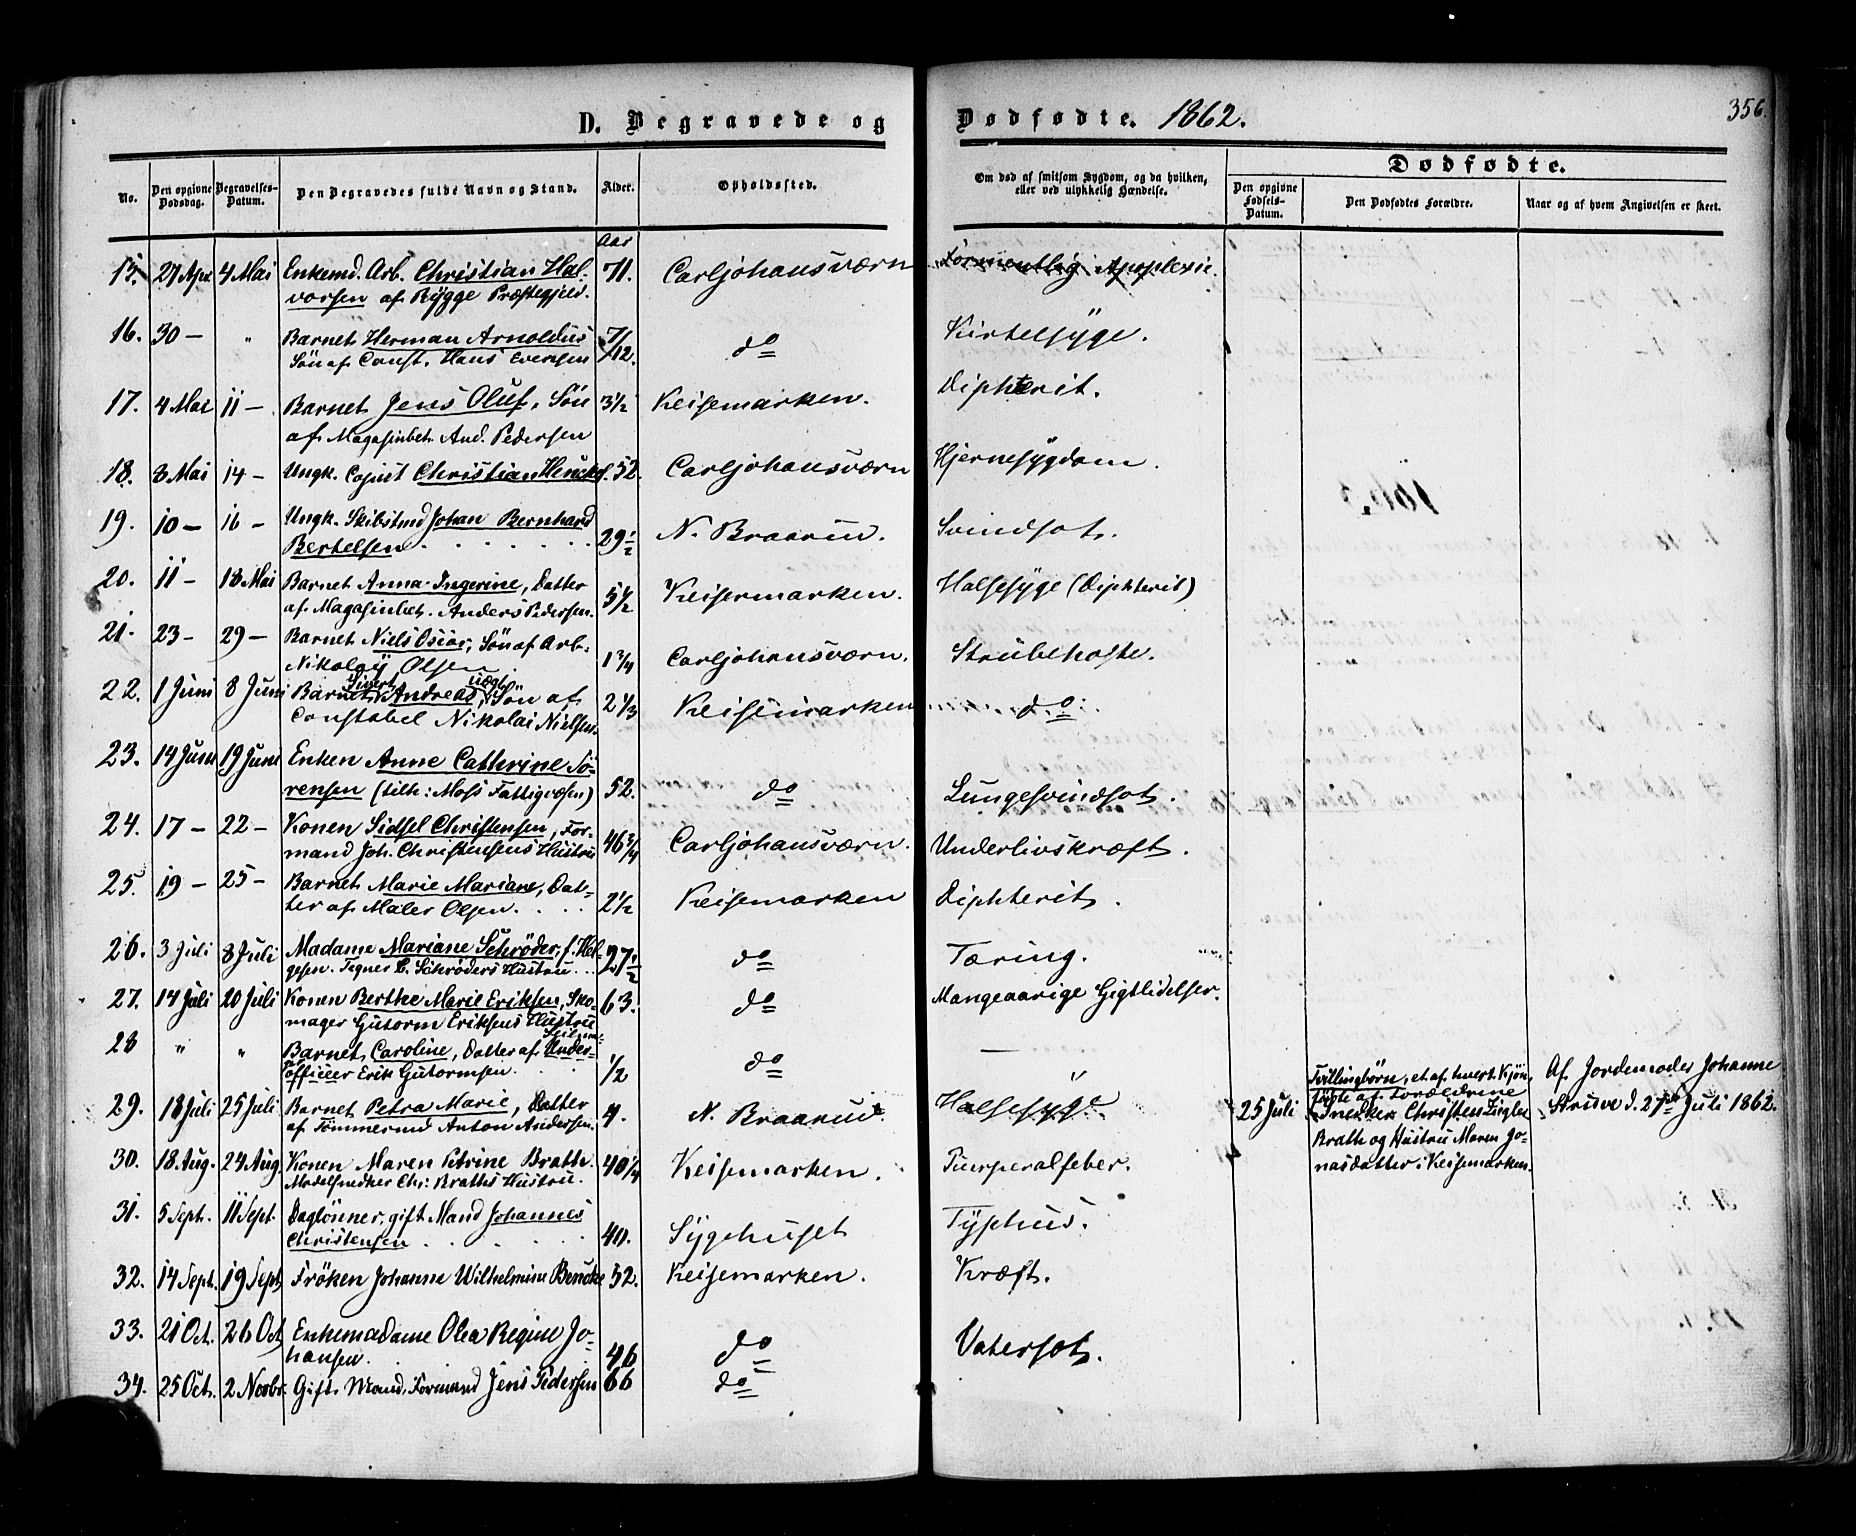 D. Begravede og Dødfødte. 1862. 356.
No. | Den opgivne Dødsdag. | Begravelses-Datum. | Den Begravedes fulde Navn og Stand. | Alder. | Opholdssted. | Om død af smitsom Sygdom, og da hvilken, eller ved ulykkelig Hændelse. | Dødfødte.
Den opgivne Fødsels-Datum. | Den Dødfødtes Forældre. | Naar og af hvem Angivelsen er skeet.
Aar
15. 27 Apr 4 Mai Enkemd. Arb. Christian Hal- 71. Carljohansværn Formentlig Apoplexie.
vorsen af Rygge Præstegjeld.
16. 30 – " Barnet Herman Arnoldus 7/12. do Kirtelsyge.
Søn af Const. Hans Evensen
17. 4 Mai 11 – Barnet Jens Oluf, Søn 3½ Keisemarken. Diphterit.
af Magasinbet. And. Pedersen
18. 8 Mai 14 – Ungk. Copist Christian Henckel. 52. Carljohansværn Hjernesygdom.
19. 10 – 16 – Ungk. Skibstmd Johan Bernhard
Bertelsen . . . . . . 29½ N. Braarud. Svindsot.
20. 11 – 18 Mai Barnet Anna Ingerine, Datter 5½ Keisermarken. Halsesyge (Diphterit)
af Magasinbet. Anders Pedersen.
21. 23 – 29 – Barnet Niels Oscar, Søn af Arb. 1¾ Carljohansværn. Strubehoste.
Nikolay Olsen
22. 1 Juni 8 Juni Barnet Sivert Andreas, uægt. Søn af 2⅓ Keisemarken do
Constabel Nikolai Nielsen.
23. 14 Juni 19 Juni Enken Anne Cathrine Sø-
rensen (tilh: Moss Fattigvæsen) 52. do Lungesvindsot.
24. 17 – 22 – Konen Sidsel Christensen, For- 46¾ Carljohansværn. Underlivskræft.
mand Joh. Christensens Hustru
25. 19 – 25 – Barnet Marie Mariane, Dat- 2½ Keisemarken Diphterit.
ter af Maler Olsen. . . .
26. 3 Juli 8 Juli Madame Mariane Schrøder, f. Hel- 27½ do Tæring.
gesen. Tegner C. Schrøders Hustru . . .
27. 14 Juli 20 Juli Konen Berthe Marie Eriksen, Sko- 63. do Mangeaarige Gigtlidelser.
mager Gutorm Eriksens Hustru
28 " " Barnet Caroline, Datter af Under- ½ do —
officeer Erik Gutormsen.
29. 18 Juli 25 Juli Barnet Petra Marie, Datter 4. N. Braarud Halsesyge
af Tømmermd Anton Andersen.
25 Juli | Tvillingbørn, et af hvert Kjøn, | Af Jordemoder Johanne
fødte af Forældrene
Snedker Christen Ziegler | Struve d. 27de Juli 1862.
Brath og Hustru Maren Jo-
nasdatter i Keisemarken.
30. 18 Aug. 24 Aug Konen Maren Petrine Brath 40¼ Keisemarken. Puerperalfeber.
Modelsnedker Chr: Braths Hustru.
31. 5 Sept. 11 Sept. Daglønner, gift Mand Johannes 40. Sygehuset Typhus.
Christensen . . . . .
32. 14 Sept. 19 Sept. Frøken Johanne Wilhelmine Bencke 32. Keisemarken. Kræft.
33. 21 Oct. 26 Oct Enkemadame Olea Regine Jo- 46 do Vatersot.
hansen.
34. 25 Oct. 2 Novbr. Gift Mand, Formand Jens Pedersen 66 do